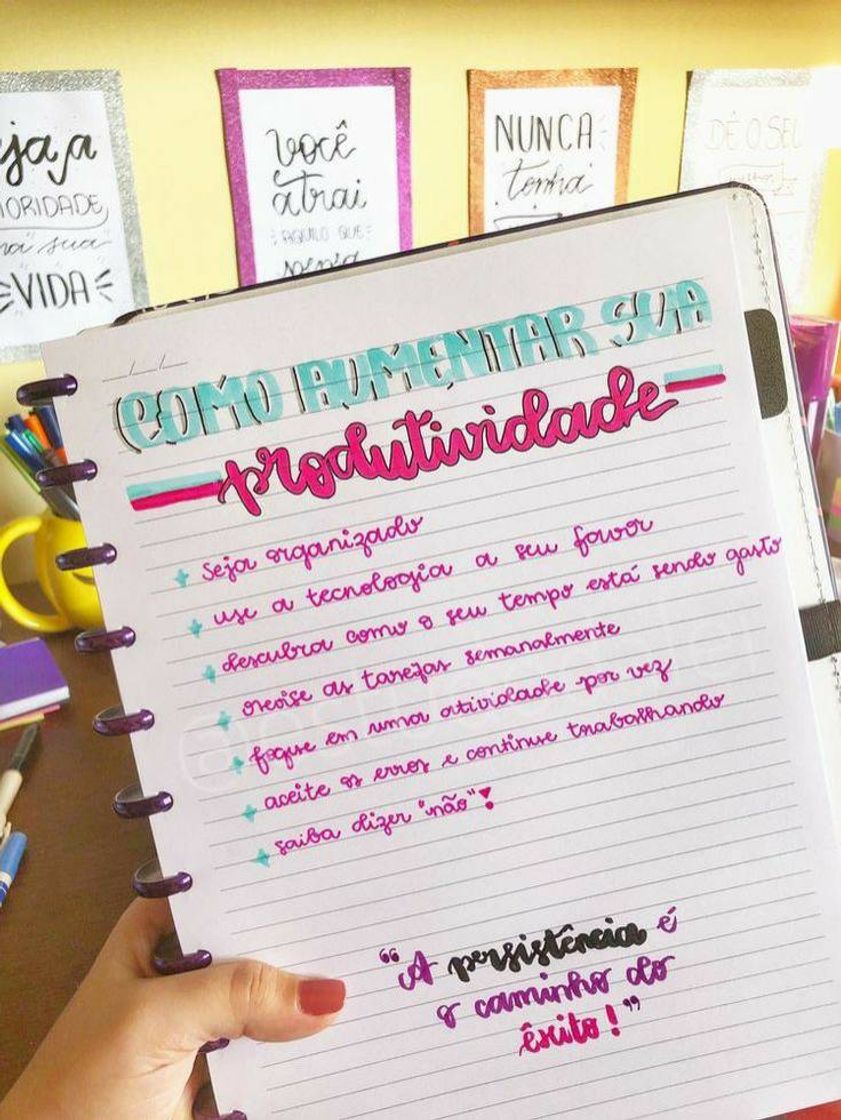 VIDA
você
atrai
AQUILO QUE
NUNCA
tenha
DÊ O SEU
COMO AUMENTAR SUA
produtividade
seja organizado
use a tecnologia a seu favor
descubra como o seu tempo está sendo gasto
revise as tarefas semanalmente
foque em uma atividade por vez
aceite os erros e continue trabalhando
saiba dizer "não"!
"A persistência é
o caminho do
êxito!"